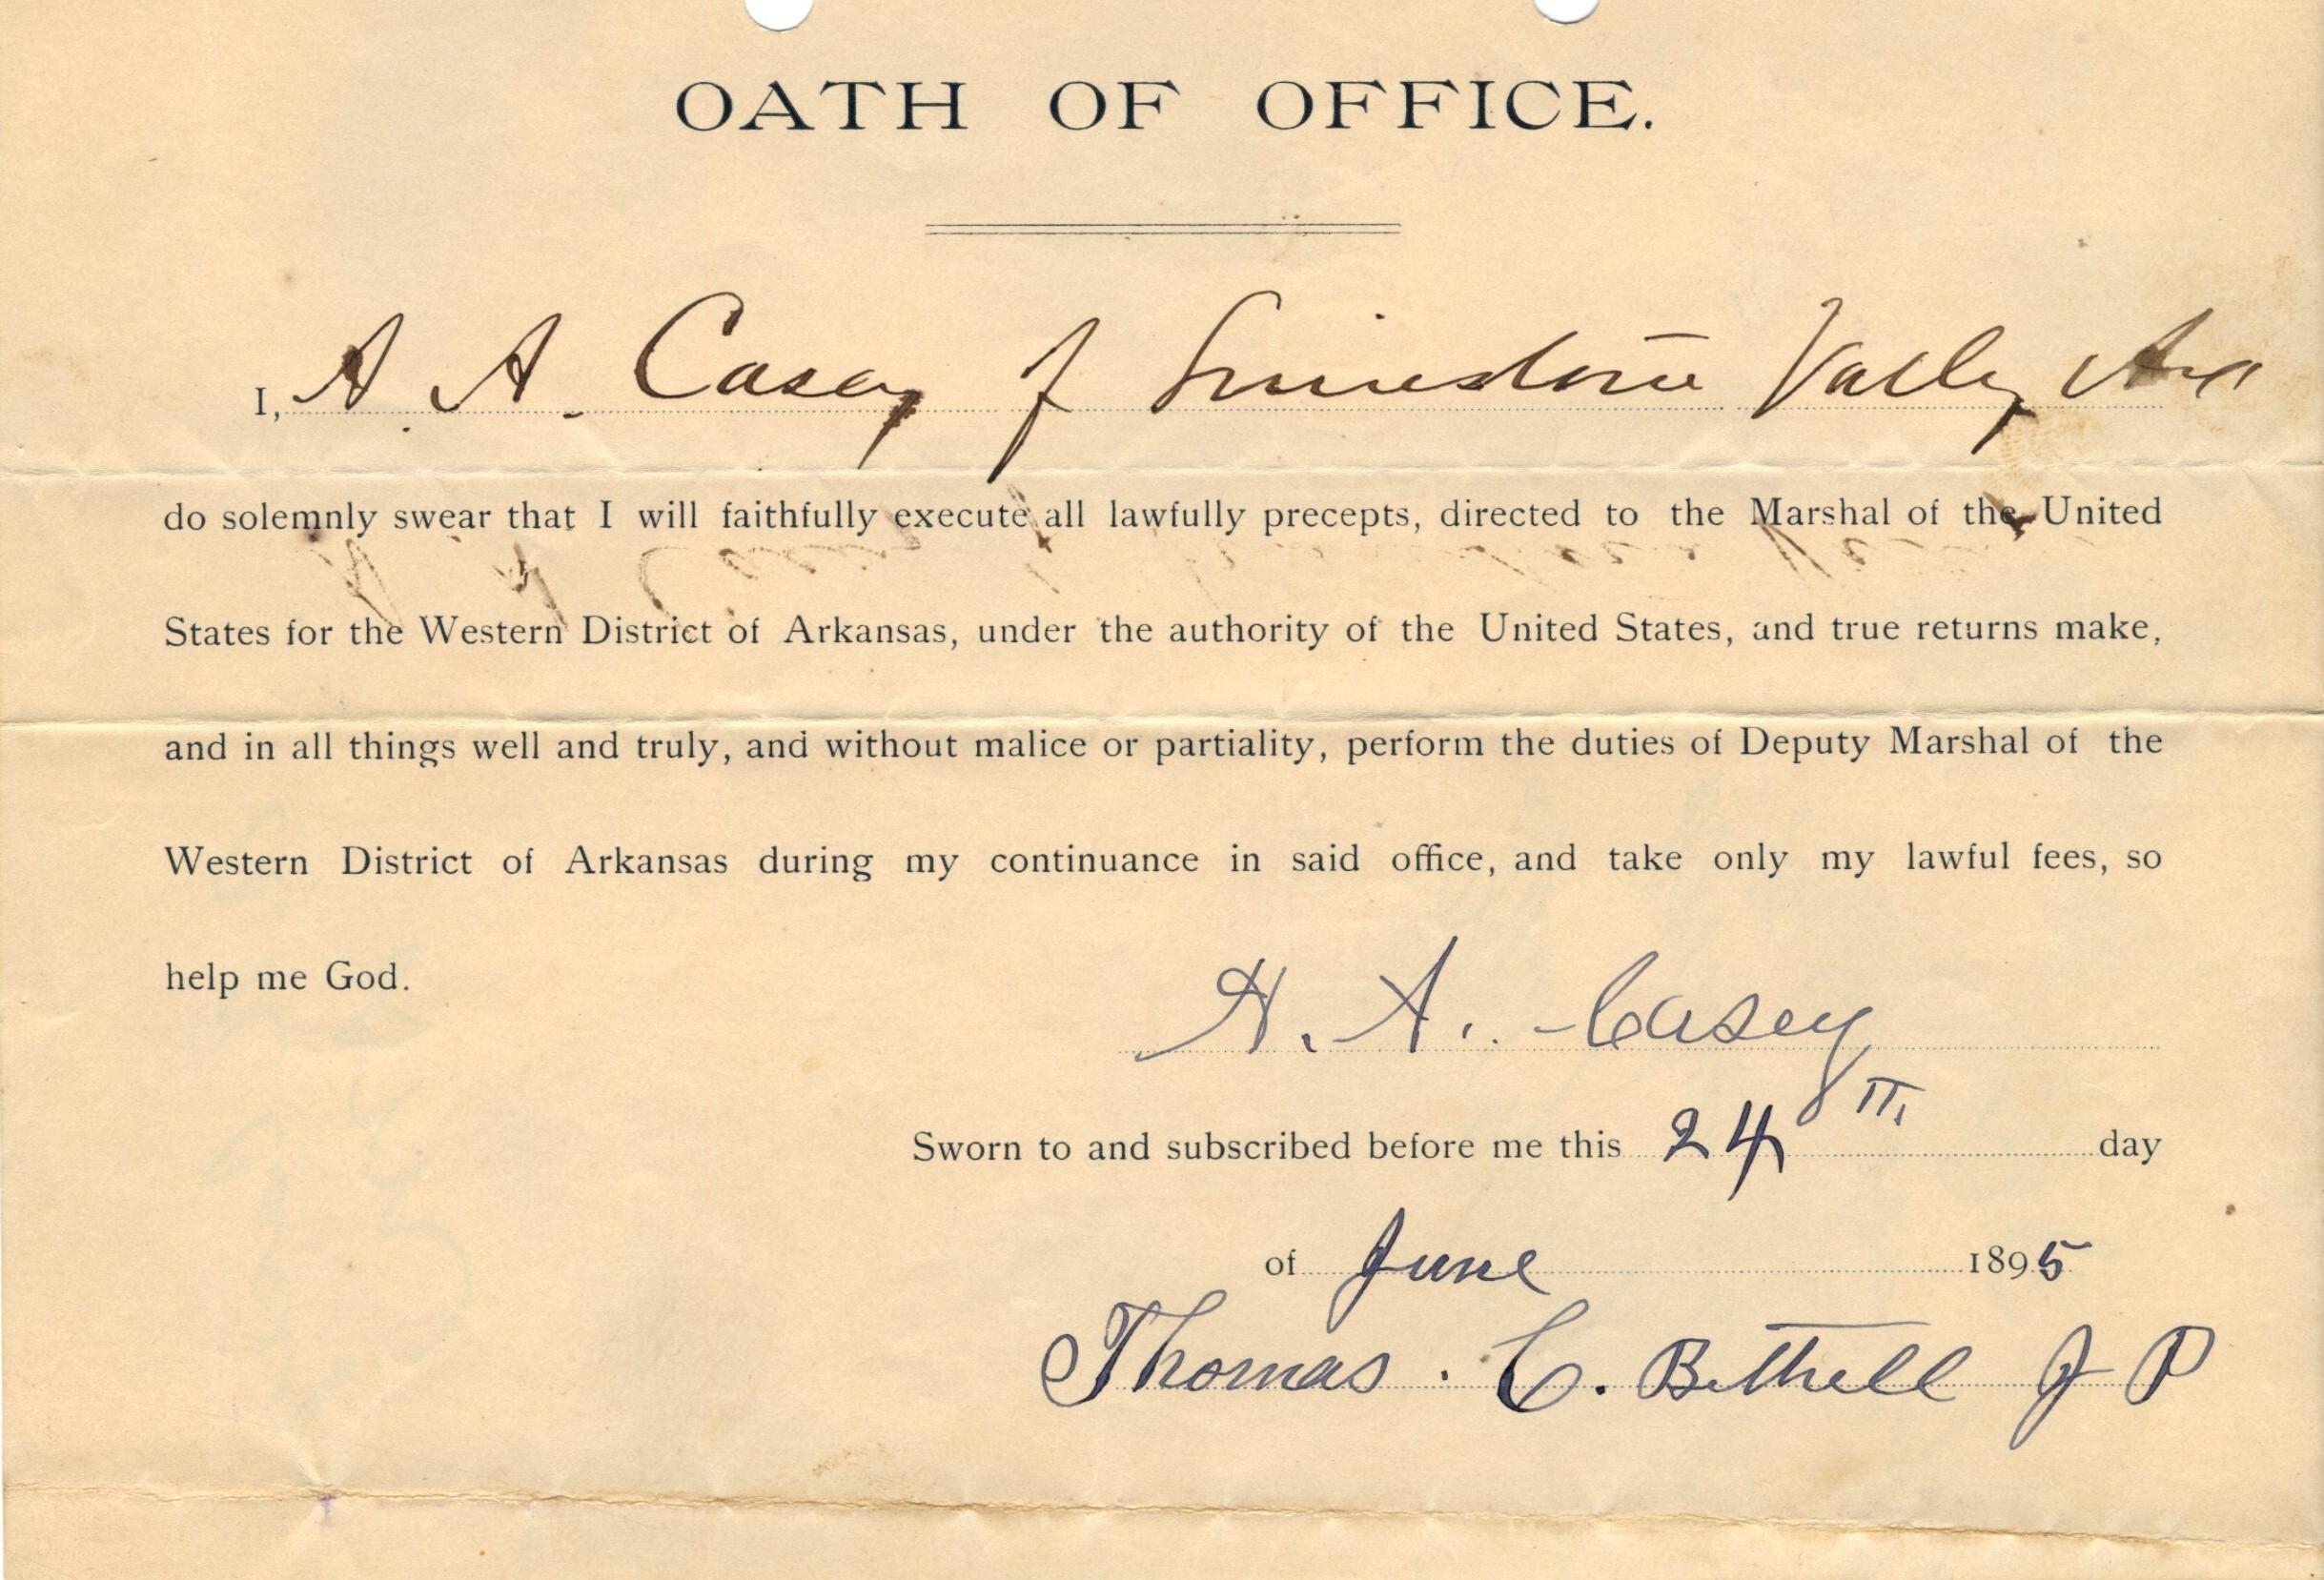 OATH OF OFFICE.
I, A. A. Casey of Limestone Valley Ark
do solemnly swear that I will faithfully execute all lawfully precepts, directed to the Marshal of the United
States for the Western District of Arkansas, under the authority of the United States, and true returns make,
and in all things well and truly, and without malice or partiality, perform the duties of Deputy Marshal of the
Western District of Arkansas during my continuance in said office, and take only my lawful fees, so
help me God.
A. A. Casey
Sworn to and subscribed before me this 24 TH, day
of June 1895
Thomas. C. Bethell J P